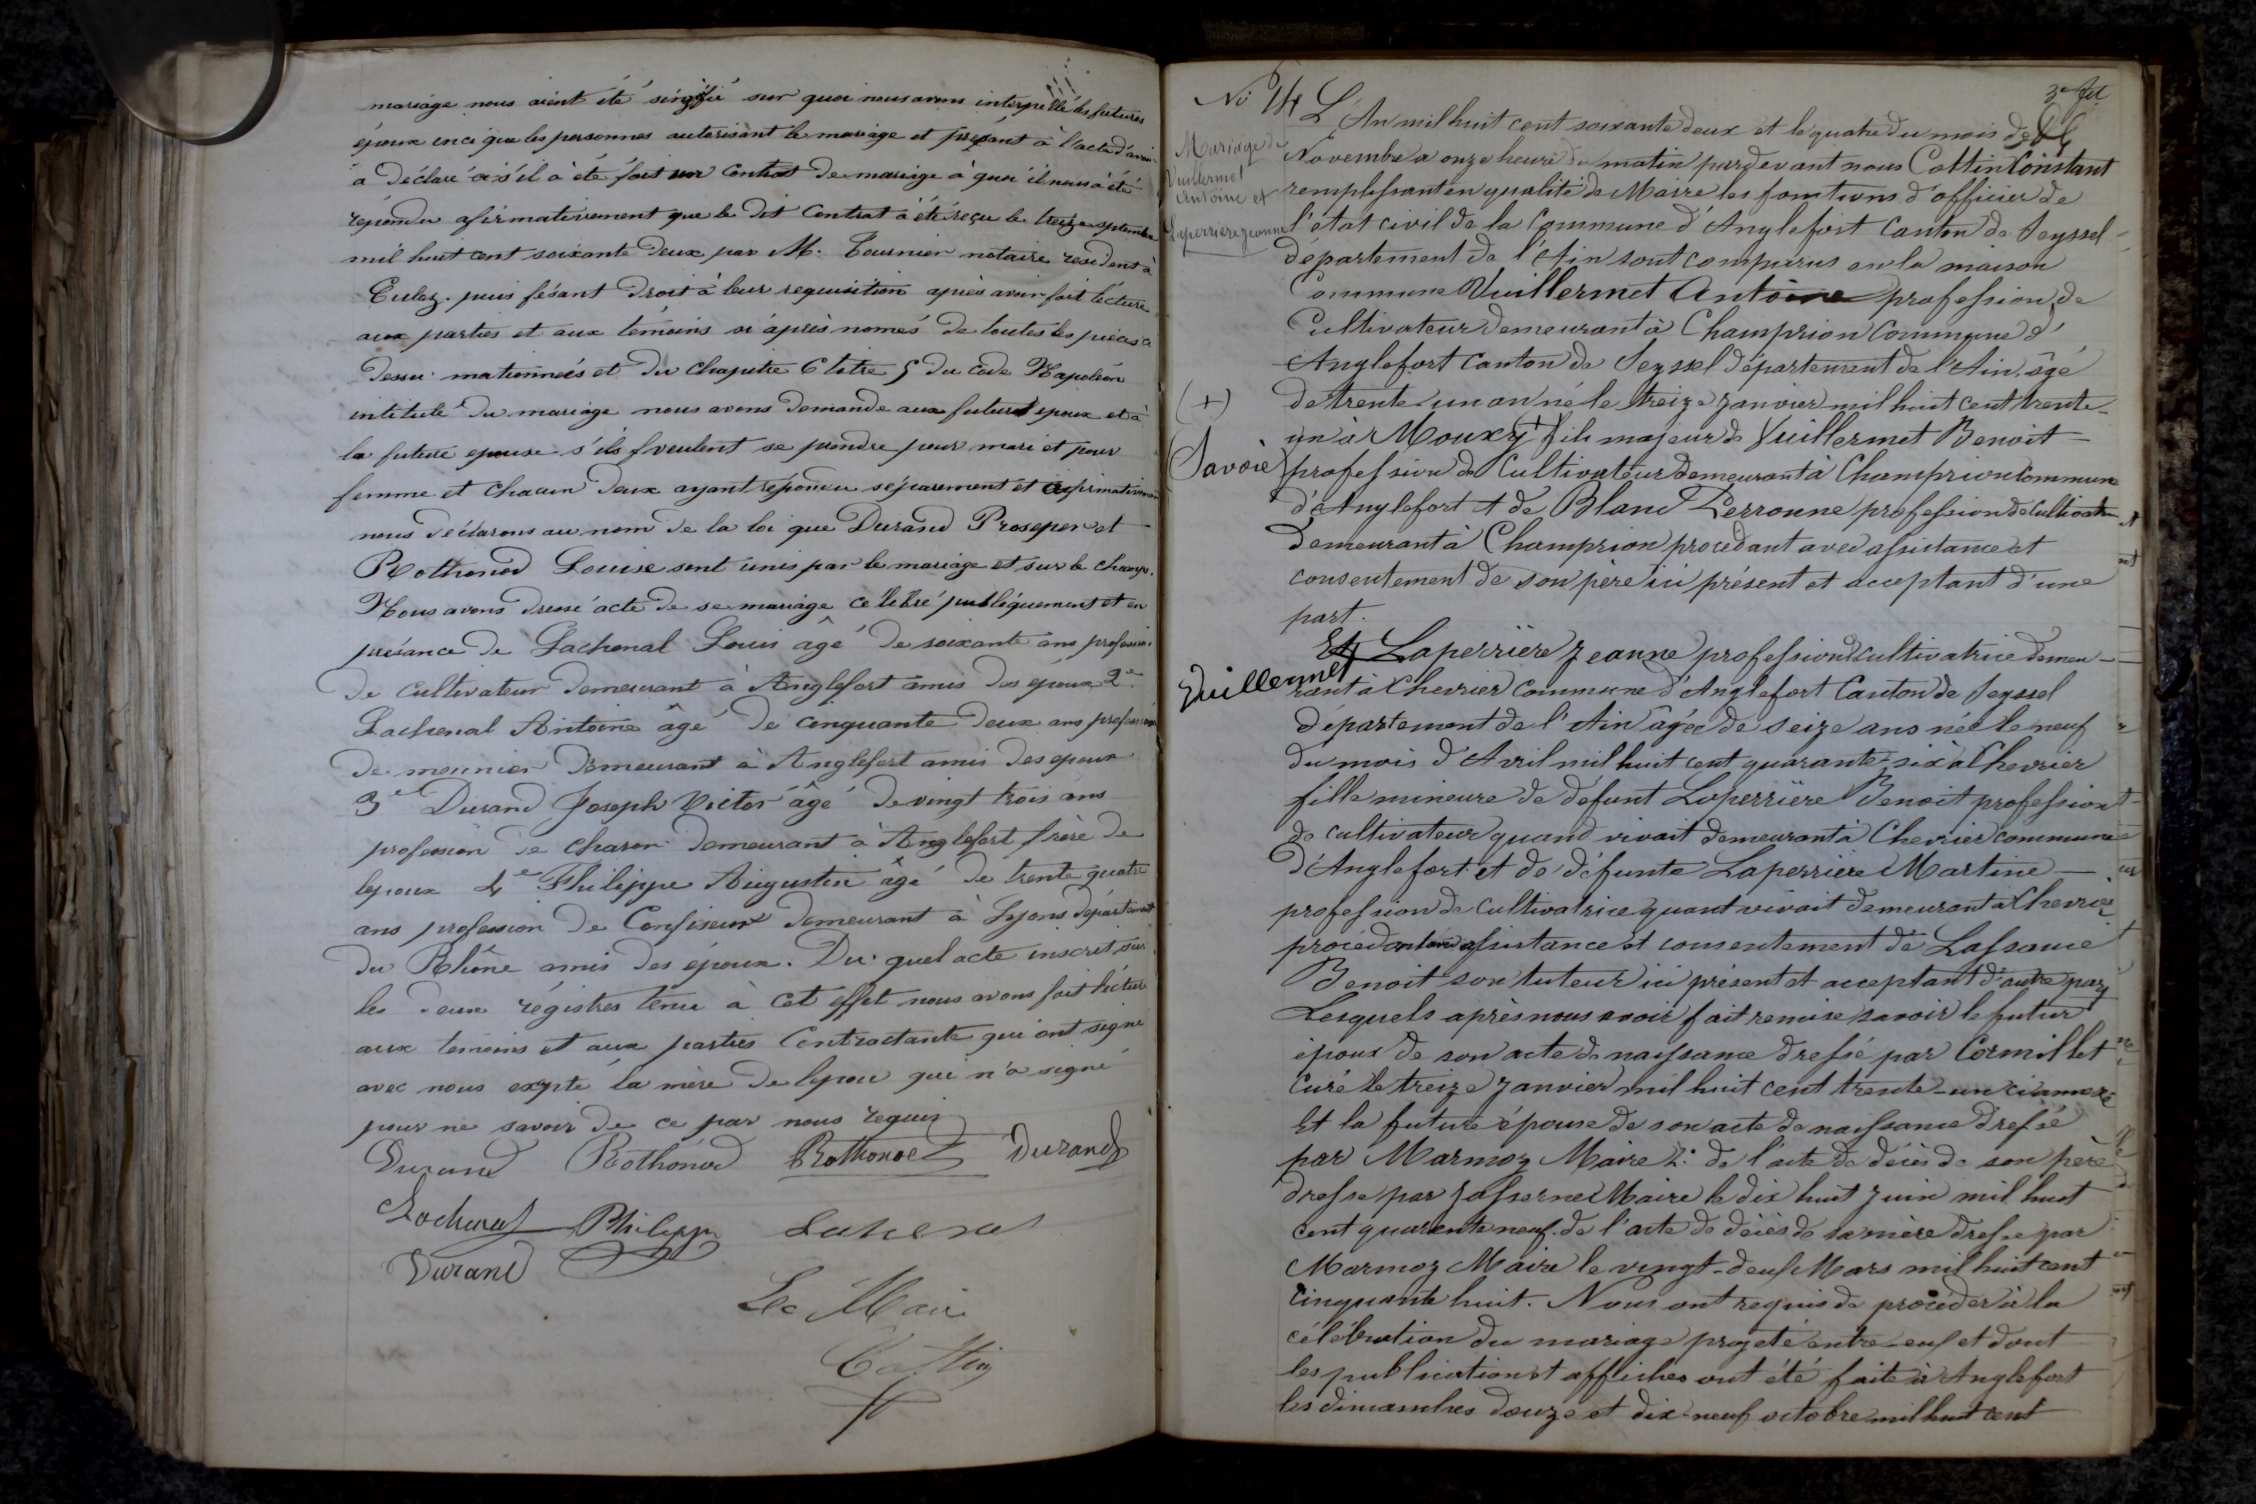 mariage nous aient été signifié sur quoi nous avons interpellé les futures
époux inci que les personnes autorisant le mariage et présant à l'acte d'avoir
a déclaré ci s'il à été fait un Contrat de mariage à quoi il nous à été
répondu afirmativement que le dit Contrat à été reçu le treize septembre
mil huit cent soixante deux par M. Tournier notaire résident à
Culoz. puis fésant droit à leur requisition après avoir fait lecture
aux parties et aux témoins si après només de toutes les pièces ci
dessu mationneés et du Chapitre 6 titre 5 du Code Napoléon
intitulé du mariage nous avons demandé aux futurs epoux et à
la future epouse s'ils veulent se prendre pour mari et pour
femme et chacun deux ayant répondu séparement et afirmativement
nous déclarons au nom de la loi que Durand Prosper et
Rothonod Louise sont unis par le mariage et sur le champ.
Nous avons dressé acte de se mariage célébré publiquement et en
présance de Lachenal Louis âgé de soixante ans profession
de cultivateur demeurant à Anglefort amis des epoux 2e
Lachenal Antoine âgé de cinquante deux ans profession
de meunier demeurant à Anglefort amis des epoux
3e Durand Joseph Victor âgé de vingt trois ans
profession de charon demeurant à Anglefort frère de
lepoux 4e Philippe Augustin âgé de trente quatre
ans profession de Confiseur demeurant à Lyons département
du Rhône amis des époux. Du quel acte inscrit sur
les deux régistres tenu à cet effet nous avons fait lécture
aux temoins et aux parties Contractante qui ont signé
avec nous exépté la mère de lepou qui n'a signé
pour ne savoir de ce par nous requis
Durand Rothonod Rothonod Durand
Lachenal Philippe Lachenal
Durand
Le Maire
Cottin
3e fet
No 14 L'An mil huit cent soixante deux et le quatre du mois de
Mariage de
Vuillermet
Antoine et
Laperriere Jeanne
Novembre a onze heure du matin pardevant nous Cottin Constant
remplessant en qualité de Maire les fonctions d'officier de
l'état civil de la Commune d'Anglefort Canton de Seyssel
département de l'Ain sont comparus en la maison
Commune Vuillermet Antoine profession de
Cultivateur demeurant à Champrion Commune d'
Anglefort Canton de Seyssel département de l'Ain, âgé
de trente un an né le treize janvier mil huit cent trente-
(+)
Savoie
un à Mouxy + fils majeur de Vuillermet Benoit
profession de Cultivateur demeurant à Champrion Commune
d'Anglefort et de Blanc Perronne profession de Cultivatrice
demeurant à Champrion procédant avec assistance et
consentement de son père ici présent et acceptant d'une
part.
Vuillermet
Et Laperrière Jeanne profession cultivatrice demeu-
rant à Chevrier commune d'Anglefort Canton de Seyssel
département de l'Ain âgée de seize ans née le neuf
du mois d'Avril mil huit cent quarante-six à Chevrier
fille mineure de défunt Laperrière Benoit profession
de cultivateur quand vivait demeurant à Chevrier commune
d'Anglefort et de défunte Laperrière Martine
profession de cultivatrice quant vivait demeurant à Chevrier
procédant avec assistance et consentement de Lassance
Benoit son tuteur ici présent et acceptant d'autre part
Lesquels après nous avoir fait remise savoir le futur
époux de son acte de naissance dressé par Cormillet
Curé le treize janvier mil huit cent trente-un ci annexé
Et la future épouse de son acte de naissance dressé
par Marmoz Maire 2° de l'acte de décès de son père
dresse par Josserme Maire le dix huit juin mil huit
cent quarante neuf. de l'acte de décès de sa mère dresse par
Marmoz Maire le vingt-deux Mars mil huit cent
cinquante huit. Nous ont requis de procéder à la
célébration du mariage projeté entre eux et dont
les publication et affliches ont été faite à Anglefort
les dimanches douze et dix-neuf octobre mil huit cent